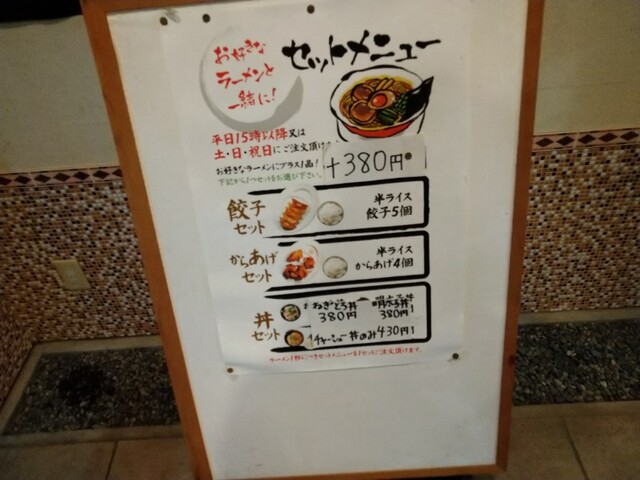 お好きな
ラーメンと
一緒に!
セットメニュー
平日15時以降又は
土・日・祝日にご注文頂け
お好きなラーメンにプラス1品!
下記から1つセットをお選び下さい。
+380円
餃子
セット
半ライス
餃子5個
からあげ
セット
半ライス
からあげ4個
丼
セット
ねぎとろ丼
380円
明太子丼
380円!
チャーシュー丼のみ430円!
ラーメン1杯につきセットメニューを1セットご注文頂けます。